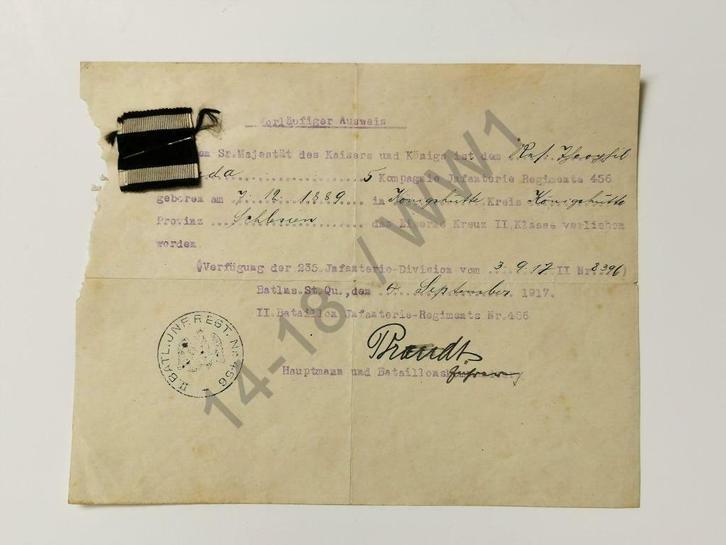 Vorläufiger Ausweis
Sr.Majestät des Kaisers und Königs ist dem Res. Theophil
5 Kompagnie Jnfanterie Regiments 456
geboren am 7. 12. 1889 in Königshütte Kreis Königshütte
Provinz Schlesien das Eiserne Kreuz II.Klasse verliehen
worden.
(Verfügung der 235.Jnfanterie-Division vom 3.9.17 II Nr. 8396)
Batlns.St.Qu.,den 4. September 1917.
II.Bataillon Jnfanterie-Regiments Nr.456
Brandt
Hauptmann und Bataillons
II. BATL. JNF. REGT. Nr. 456
14-18 / WW1